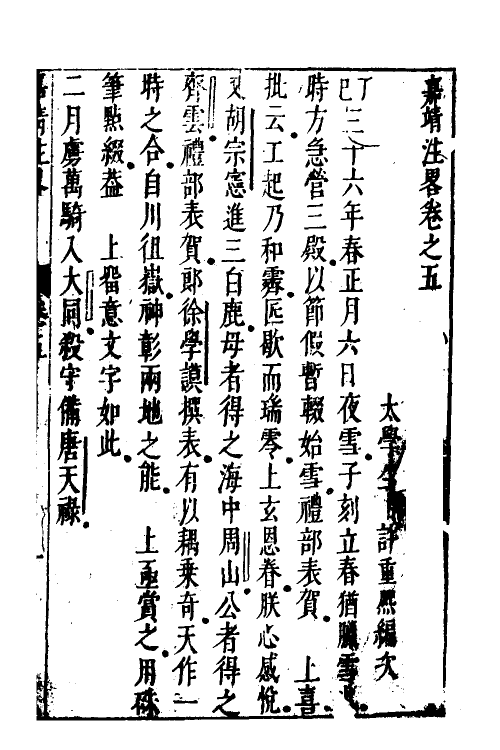 嘉靖注畧卷之五
太學生 許重熙編次
丁巳三十六年春正月六日夜雪子刻立春猶臘雪
時方急營三殿以節假暫輟始雪禮部表賀 上喜
批云工起乃和霽匠歇而瑞零上玄恩眷朕心感悅
又胡宗憲進三白鹿母者得之海中周山公者得之
齊雲禮部表賀郎徐學謨撰表有以耦乗奇天作一
時之合自川徂嶽神彰兩地之能 上亟賞之用硃
筆點綴葢 上畱意文字如此
二月虜萬騎入大同殺守備唐天祿